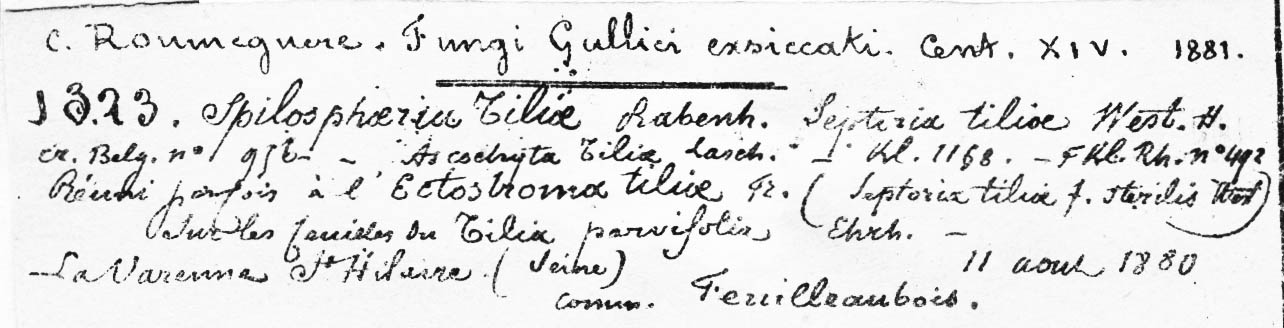 C. Roumeguere. Fungi Gallici exsiccati. Cent. XIV. 1881.
1323. Spilosphæria Tiliæ Rabenh. Septoria tiliæ West. H.
cr. Belg. nº – Ascochyta Tiliæ Lasch. – Kl. 1168. – F Kl. Rh. nº 492
Réuni parfois à l'Ectostroma tiliæ Fr. (Septoria tiliæ f. sterilis West)
Sur les feuilles du Tilia parvifolia Ehrh. –
– La Varenne St Hilaire (Seine) 11 aout 1880
comm. Feuilleaubois.